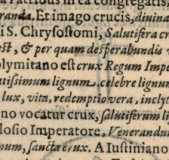 randa. Et imago crucis, diuina
i S. Chrysostomi, Salutifera cr
est, & per quam desperabundis v
olymitano est crux Regum Imper
utissimum lignum, celebre lignum
lux, vita, redemptio vera, inclyt
no vocatur crux, salutiferum li
dosio Imperatore, Venerandu
num, sancta crux. A Iustiniano